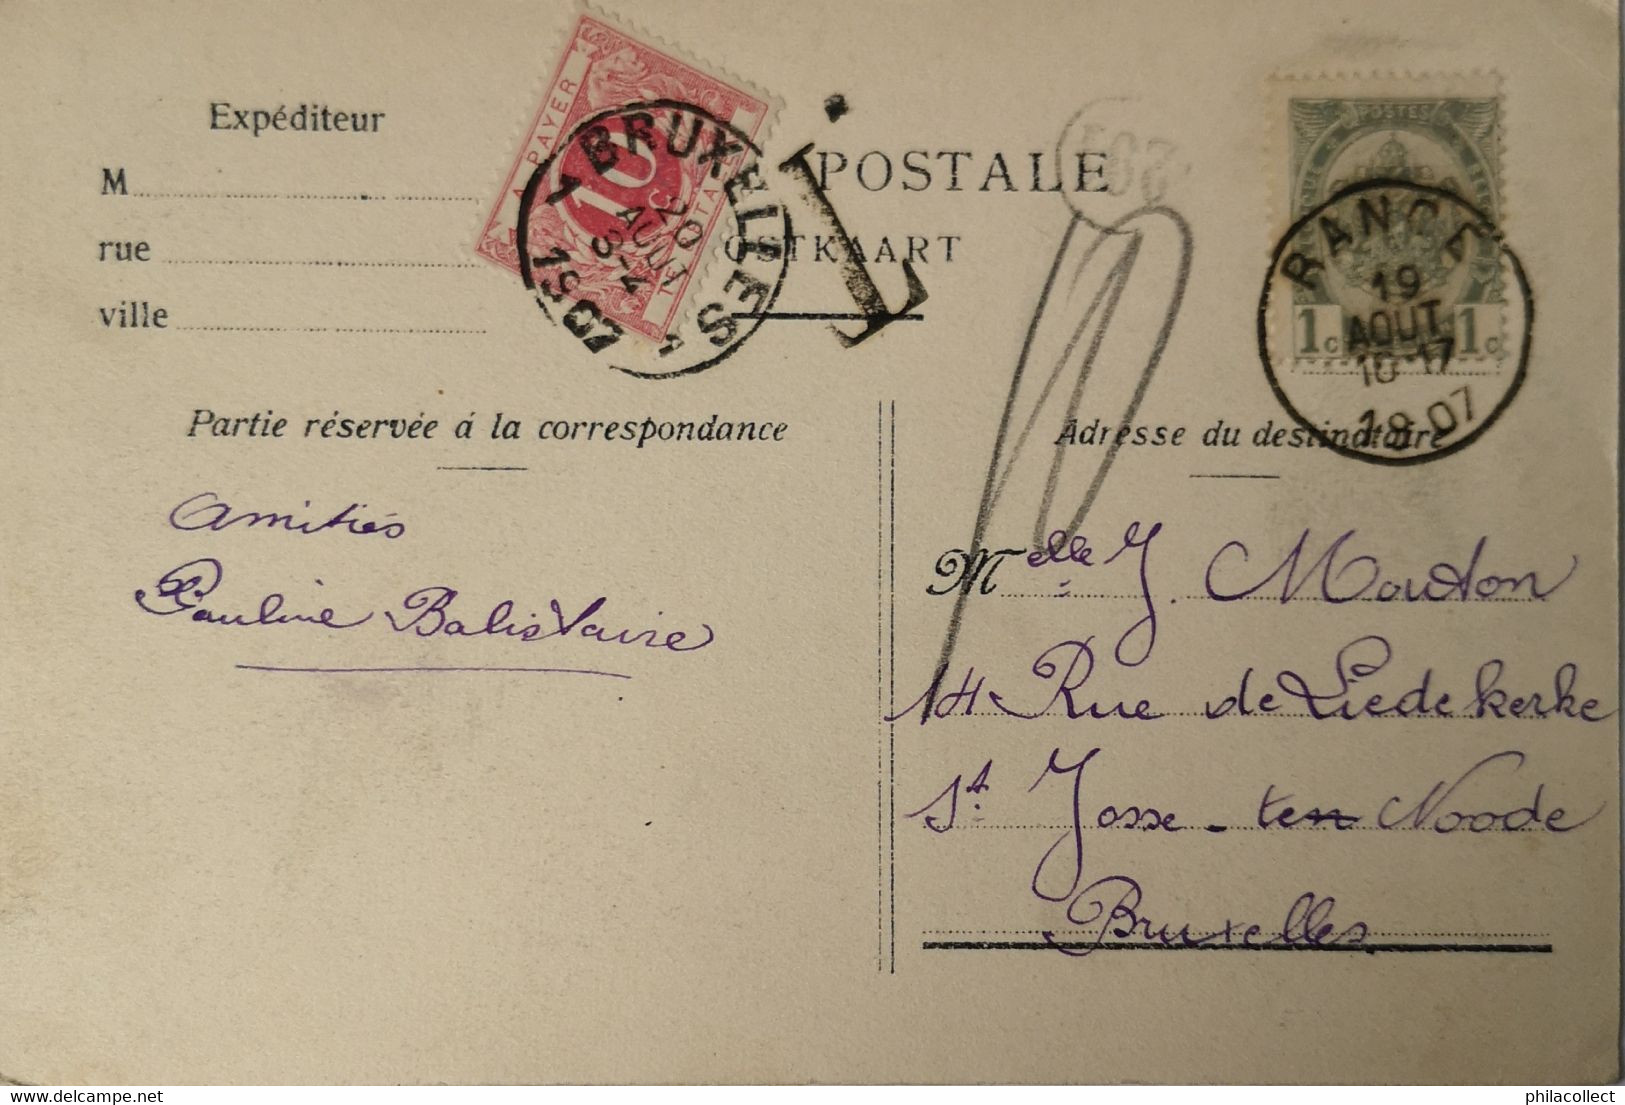 Expéditeur
M
rue
ville
A PAYER
10 c
1 BRUXELLES 1
20
AOUT
3-4
1907
T
POSTALE
POSTKAART
POSTES
1c 1c
RANCE
19
AOUT
16-17
1907
10
Partie réservée á la correspondance
Adresse du destinataire
Amitiés
Pauline Balistaire
Melle J. Mouton
14 Rue de Liedekerke
St. Josse-ten Noode
Bruxelles
delcampe.net
philacollect